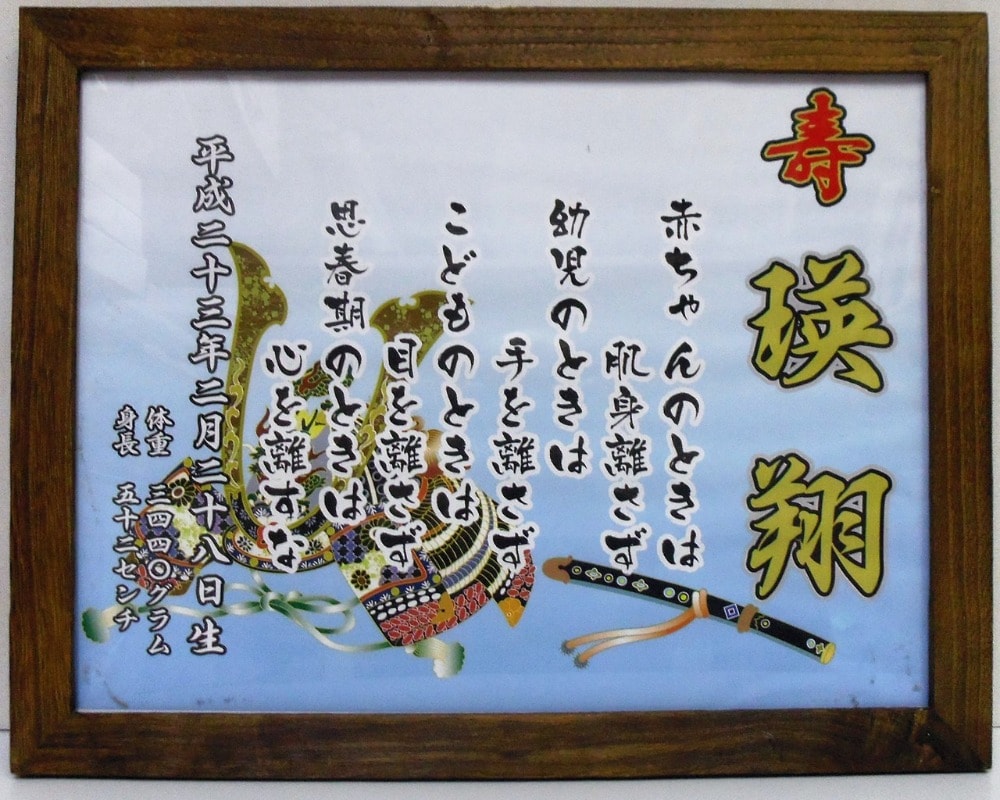 寿 瑛翔
赤ちゃんのときは
肌身離さず
幼児のときは
手を離さず
こどものときは
目を離さず
思春期のときは
心を離すな
平成二十三年二月二十八日生
体重 三四四〇グラム
身長 五十二センチ